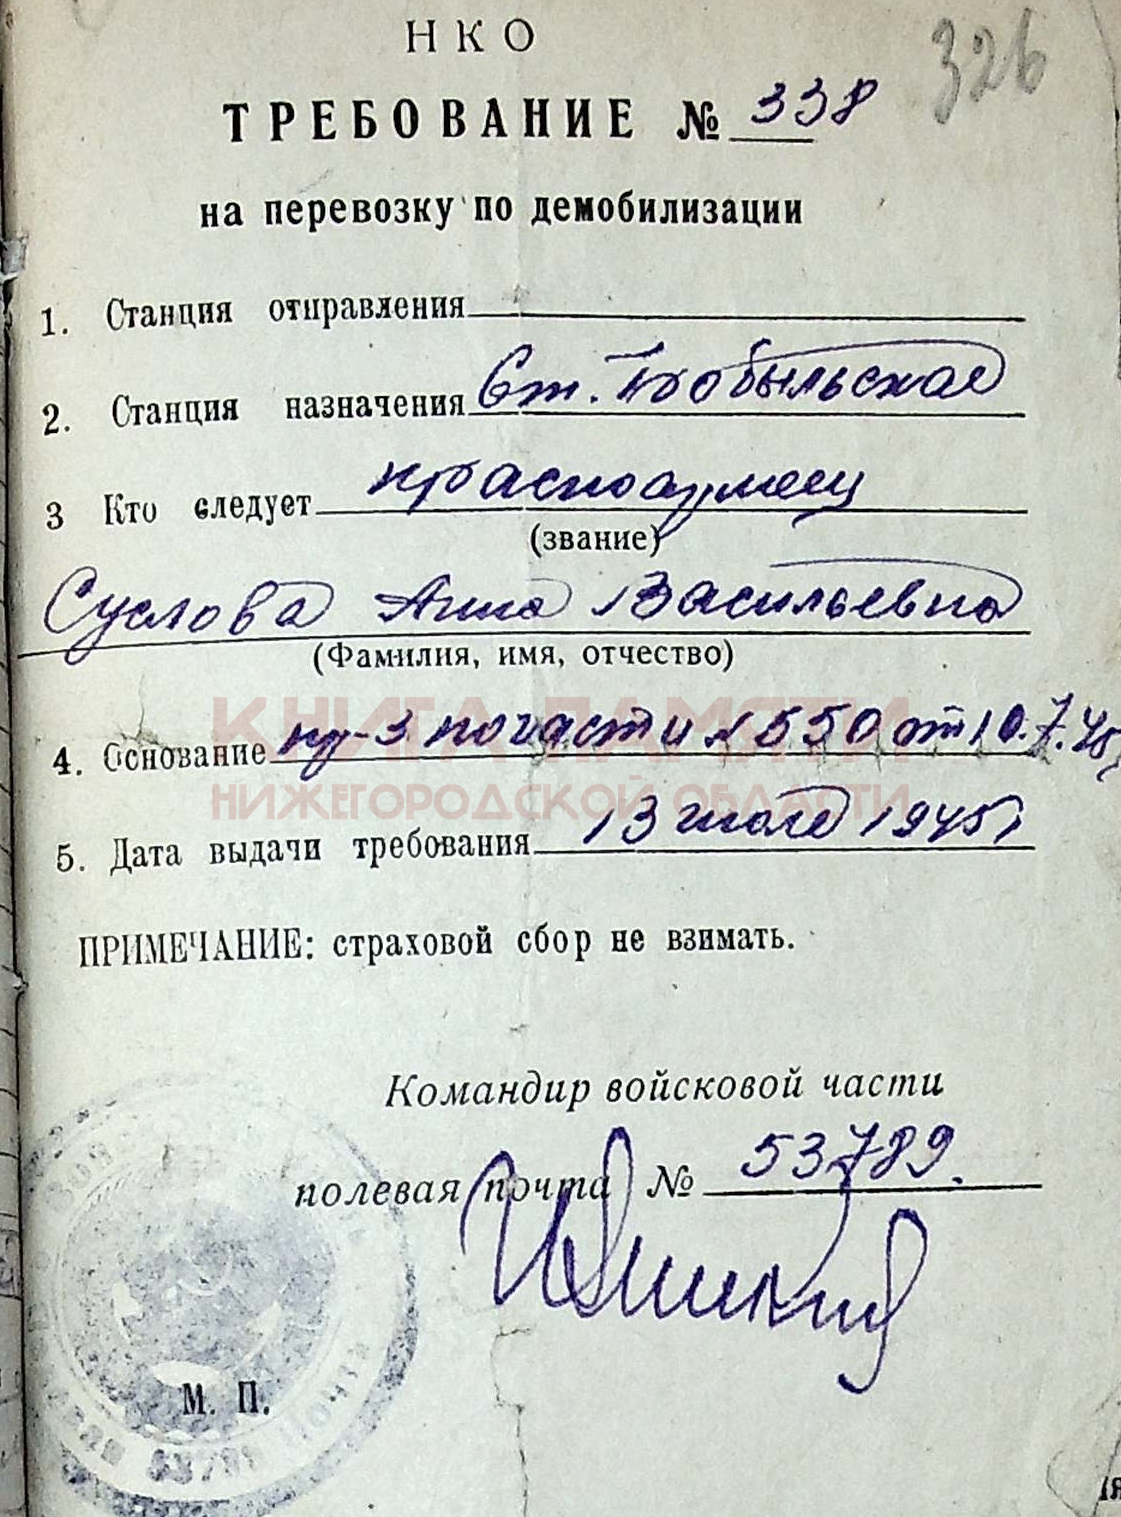 НКО
326
ТРЕБОВАНИЕ № 338
на перевозку по демобилизации
1. Станция отправления
2. Станция назначения Ст. Кобыльская
3 Кто следует красноармеец
(звание)
Суслова Анна Васильевна
(Фамилия, имя, отчество)
КНИГА ПАМЯТИ
4. Основание пр-з по части № 550 от 10.7.45г
НИЖЕГОРОДСКОЙ ОБЛАСТИ
5. Дата выдачи требования 13 июля 1945г
ПРИМЕЧАНИЕ: страховой сбор не взимать.
Командир войсковой части
полевая почта № 53789.
М. П.
53789 Почта